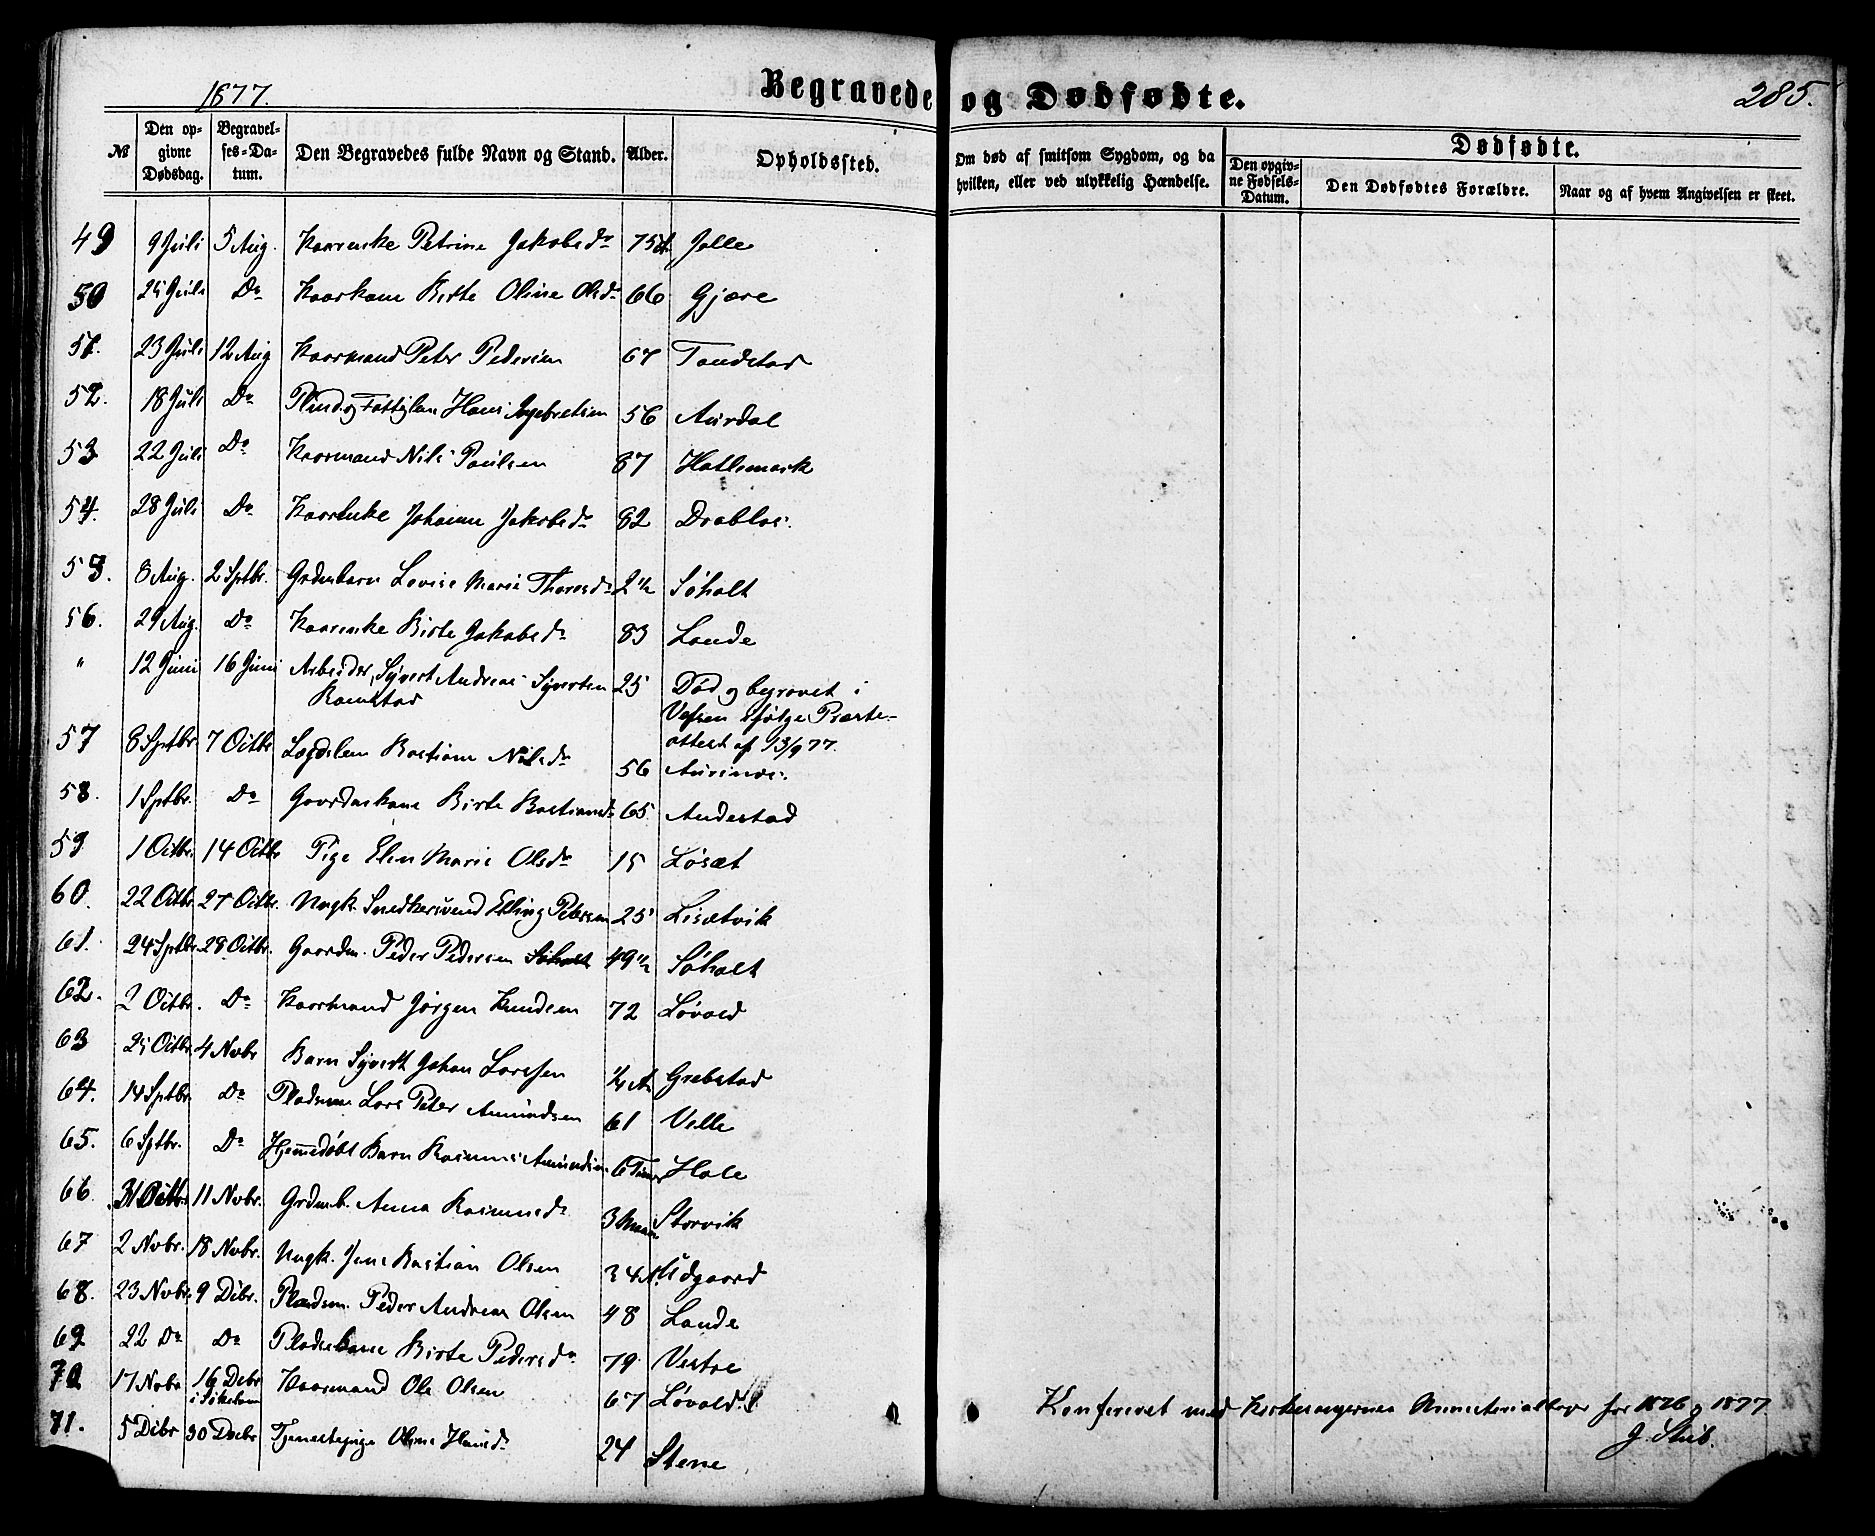 1877.
Begravede og Dødfødte.
285.
№
Den opgivne Dødsdag.
Begravelses-Datum.
Den Begravedes fulde Navn og Stand.
Alder.
Opholdssted.
Om død af smitsom Sygdom, og da hvilken, eller ved ulykkelig Hændelse.
Dødfødte.
Den opgivne Fødsels-Datum.
Den Dødfødtes Forældre.
Naar og af hvem Angivelsen er skeet.
49 9 Juli 5 Aug. Kaarenke Petrine Jakobsdr 75 A. Jolle
50 25 Juli Do Kaarkone Birte Oline Olsdr 66 Gjære
51. 23 Juli 12 Aug Kaarmand Peter Pedersen 67 Tandstad
52. 18 Juli Do Blind og Fattiglem Hans Ingebretsen 56 Aurdal
53 22 Juli Do Kaarmand Nils Paulsen 87 Hatlemark
54. 28 Juli Do Kaarenke Johanne Jakobsdr 82 Drabløs.
55. 8 Aug. 2 Sptbr. Grdmbarn Lovise Marie Thoresdr 2 1/2 Søholt
56. 29 Aug. Do Kaarenke Birte Jakobsdr 83 Lande
" 12 Juni 16 Juni Arbeider, Syvert Andreas Syvertsen 25 Død og begravet i
Ramstad Vefsen ifølge Præste-
attest af 13/9 77.
57 8 Sptbr 7 Octbr Lægdslem Bastiane Nilsdr 56 Aurenes.
58. 1 Sptbr. Do Gaardmkone Birte Bastiansdr 65 Andestad
59 1 Octbr. 14 Octbr Pige Elen Marie Olsdr 15 Løsæt
60. 22 Octbr. 27 Octbr. Ungk. Snedkersvend Elling Petersen 25 Lisætvik
61. 24 Sptbr. 28 Octbr. Gaardm. Peder Pedersen Søholt 49 1/2 Søholt
62. 2 Octbr. Do Kaarmand Jørgen Knudsen 72 Løvold
63 25 Octbr. 4 Novbr Barn Syvert Johan Larssen 1/4 A. Grebstad
64. 14 Sptbr. Do Pladsm Lars Peter Amundsen 61 Velle
65. 6 Sptbr. Do Hjemmedøbt Barn Rasmus Amundsen 6 Timer Hole
66. 31 Octbr 11 Novbr. Grdmb. Anna Rasmusdr 3 Maan Storvik
67 2 Novbr. 18 Novbr. Ungk. Jens Bastian Olsen 34 A. Udgaard
68. 23 Novbr. 9 Dcbr. Pladsm. Peder Andreas Olsen 48 Lande
69 22 Do Do Pladsekone Birte Pedersdr 79 Vestre
70 17 Novbr 16 Dcbr Kaarmand Ole Olsen 67 Løvold
71. 5 Dcbr 30 Dcbr Tjenestepige Oline Hansdr 24 Stene
Konfereret med Kirkesangernes Ministerialbøger for 1876 og 1877
J. Stub.